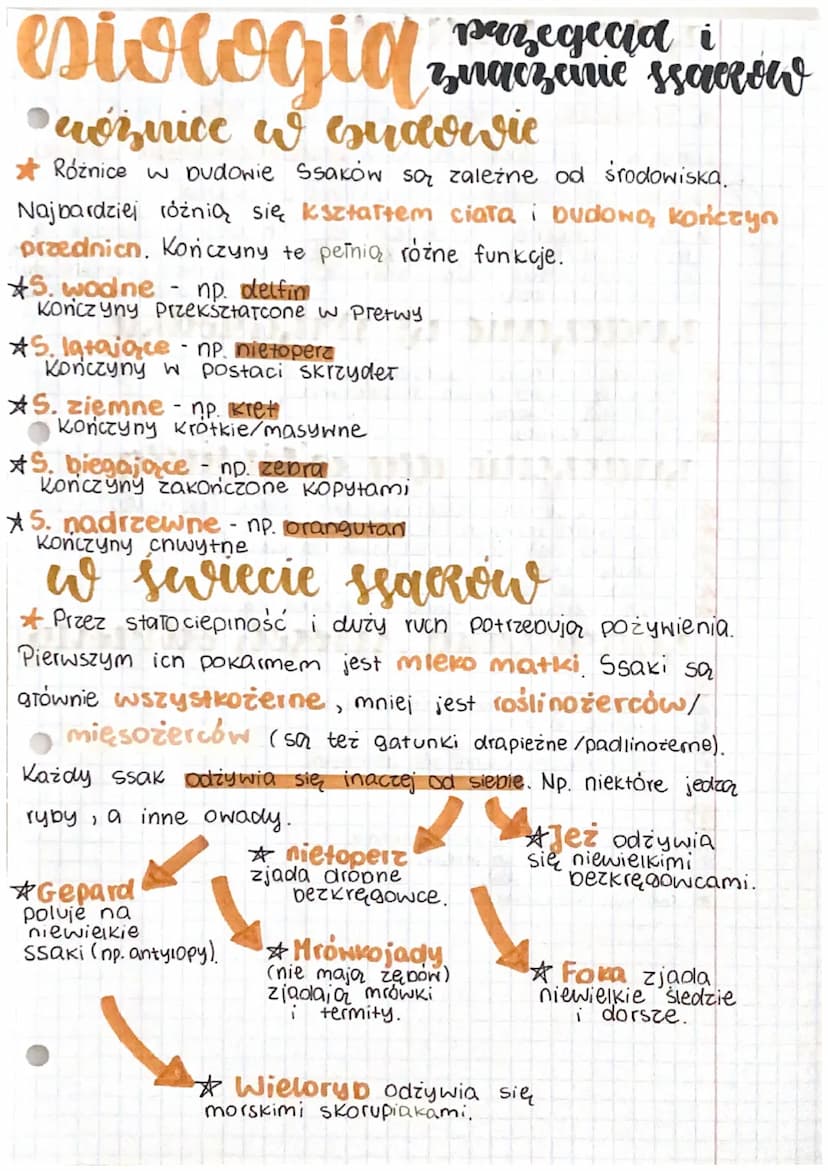 biologia przegląd i
znaczenie ssaków
różnice w budowie
Różnice w budowie ssaków są zależne od środowiska.
Najbardziej różnią się kształtem ciała i budową kończyn
przednich. Kończyny te pełnią różne funkcje.
S. wodne - np. delfin
kończyny przekształcone w płetwy
S. latające - np. nietoperz
kończyny w postaci skrzydeł
S. ziemne - np. kret
kończyny krótkie/masywne
S. biegające - np. zebra
kończyny zakończone kopytami
S. nadrzewne - np. orangutan
kończyny chwytne
w świecie ssaków
Przez stałocieplność i duży ruch potrzebują pożywienia.
Pierwszym ich pokarmem jest mleko matki. Ssaki są
głównie wszystkożerne, mniej jest roślinożerców/
mięsożerców (są też gatunki drapieżne/padlinożerne).
Każdy ssak odżywia się inaczej od siebie. Np. niektóre jedzą
ryby, a inne owady.
Jeż odżywia
się niewielkimi
bezkręgowcami.
nietoperz
zjada drobne
bezkręgowce.
Gepard
poluje na
niewielkie
ssaki (np. antylopy).
Mrówkojady
(nie mają zębów)
zjadają mrówki
i termity.
Foka zjada
niewielkie śledzie
i dorsze.
Wieloryb odżywia się
morskimi skorupiakami.